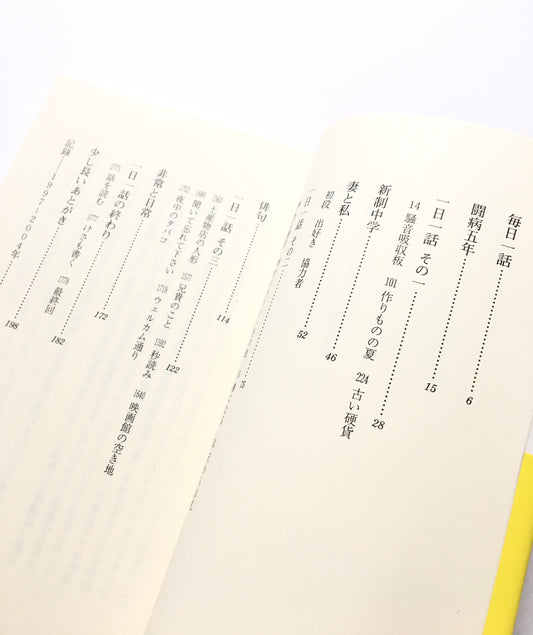 毎日一話……6
闘病五年……15
一日一話 その一……28
14 騒音吸収板 101 作りものの夏 224 古い硬貨
新制中学……46
妻と私……52
初段 出好き 協力者
一日一話 その二……75
俳句……114
一日一話 その三……122
土産物店の人形 兄貴のこと 秒読み
聞いて忘れて下さい ウェルカム通り 1646 映画館の空き地
夜中のタバコ
非常と日常……172
一日一話の終わり……182
話を読む けさも書く 最終回
少し長いあとがき……198
記録――1997-2004年